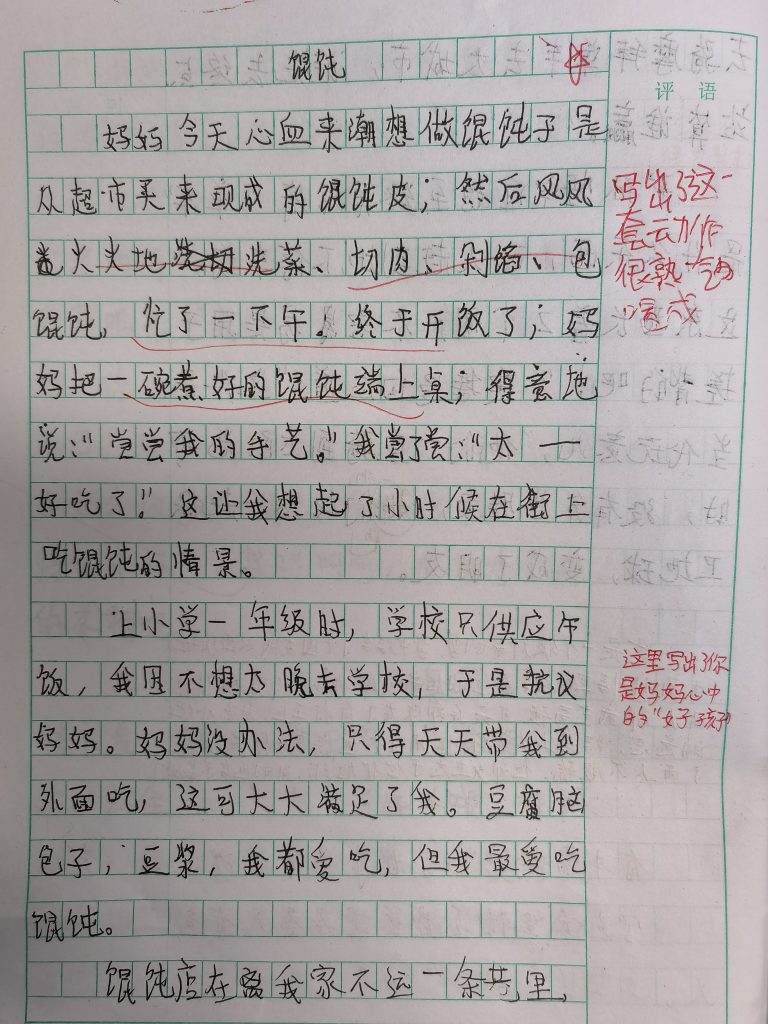 馄饨
评 语
妈妈今天心血来潮想做馄饨子是
从超市买来现成的馄饨皮；然后风风
火火地洗菜、切肉、剁馅、包
馄饨，忙了一下午。终于开饭了；妈
妈把一碗煮好的馄饨端上桌；得意地
说：“尝尝我的手艺。”我尝了尝：“太一
好吃了！”这让我想起了小时候在街上
吃馄饨的情景。
上小学一年级时，学校只供应午
饭，我因不想太晚去学校，于是抗议
妈妈。妈妈没办法，只得天天带我到
外面吃，这可大大满足了我。豆腐脑
包子，豆浆，我都爱吃，但我最爱吃
馄饨。
馄饨店在离我家不远一条巷里，
写出了这一
套动作
很熟
成
这里写出了你
是妈妈心中
的“好孩子”